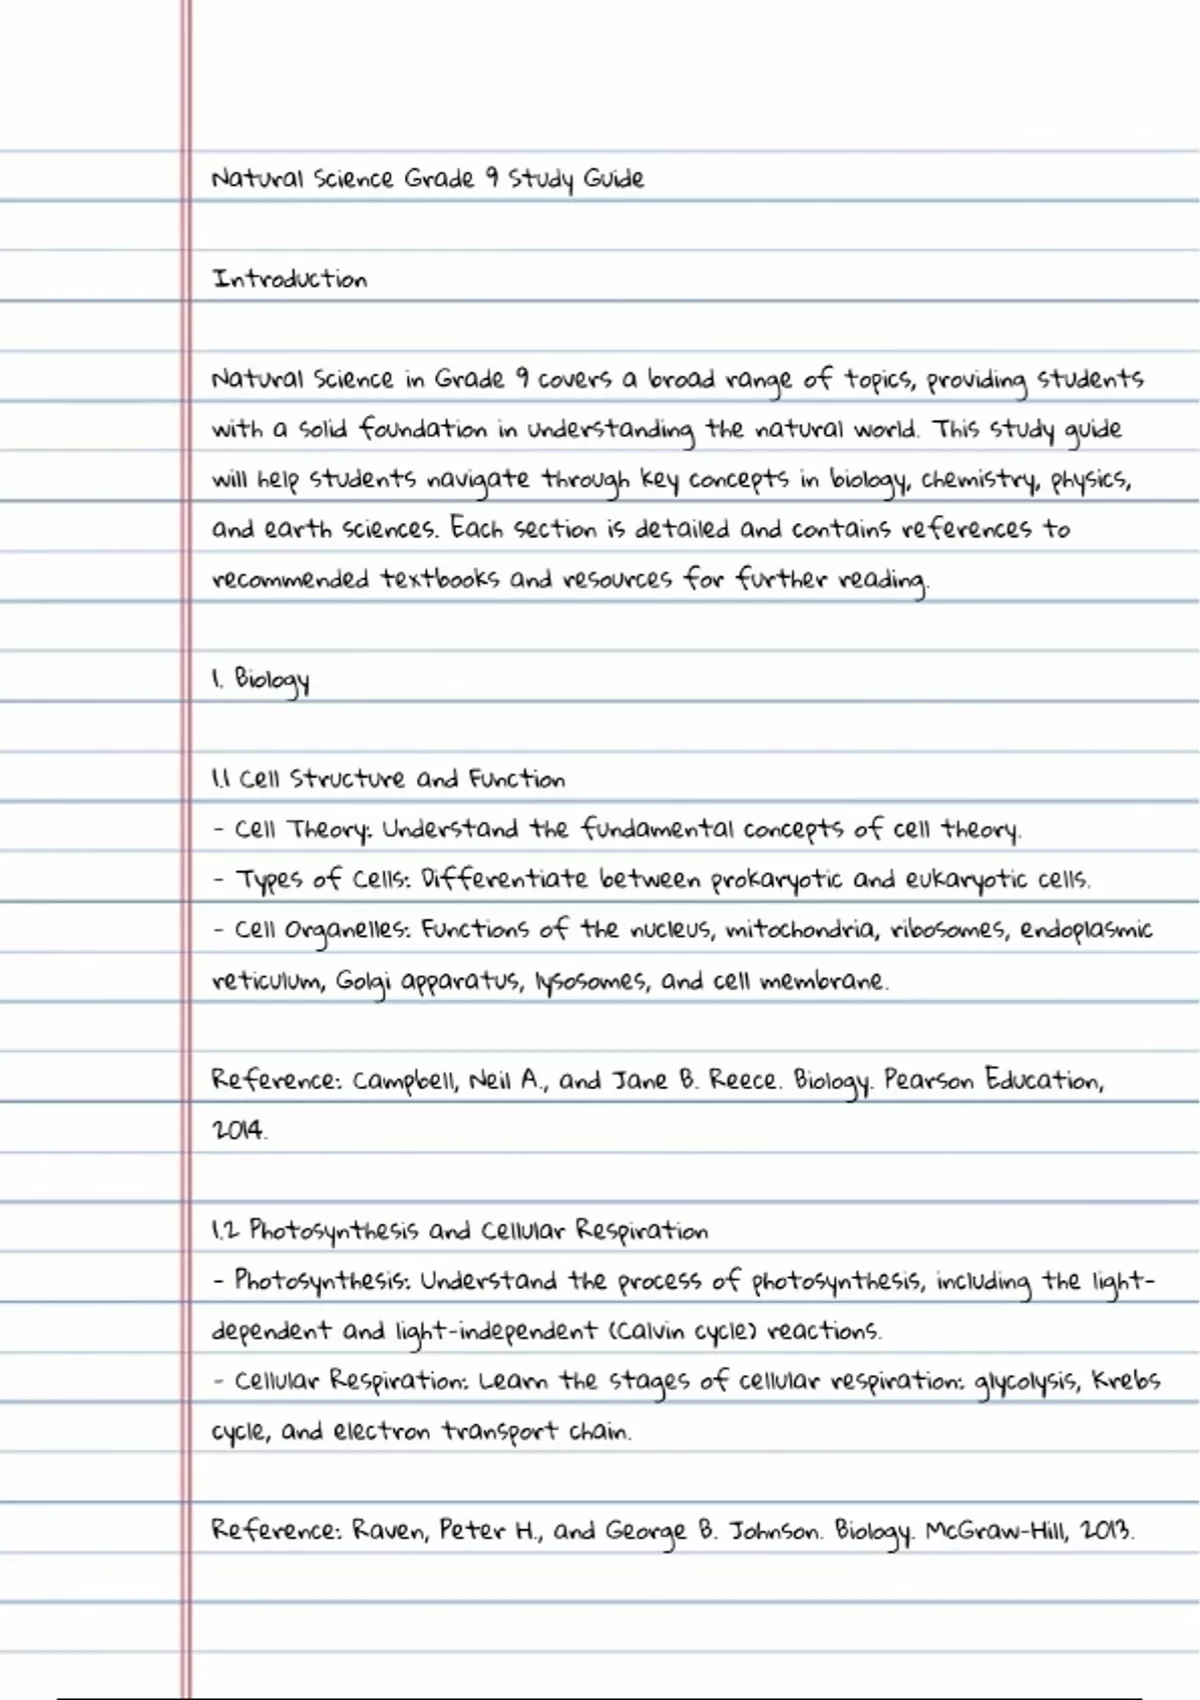 Natural Science Grade 9 Study Guide
Introduction
Natural Science in Grade 9 covers a broad range of topics, providing students
with a solid foundation in understanding the natural world. This study guide
will help students navigate through key concepts in biology, chemistry, physics,
and earth sciences. Each section is detailed and contains references to
recommended textbooks and resources for further reading.
1. Biology
1.1 Cell Structure and Function
- Cell Theory: Understand the fundamental concepts of cell theory.
- Types of Cells: Differentiate between prokaryotic and eukaryotic cells.
- Cell Organelles: Functions of the nucleus, mitochondria, ribosomes, endoplasmic
reticulum, Golgi apparatus, lysosomes, and cell membrane.
Reference: Campbell, Neil A., and Jane B. Reece. Biology. Pearson Education,
2014.
1.2 Photosynthesis and Cellular Respiration
- Photosynthesis: Understand the process of photosynthesis, including the light-
dependent and light-independent (Calvin cycle) reactions.
- Cellular Respiration: Learn the stages of cellular respiration: glycolysis, Krebs
cycle, and electron transport chain.
Reference: Raven, Peter H., and George B. Johnson. Biology. McGraw-Hill, 2013.